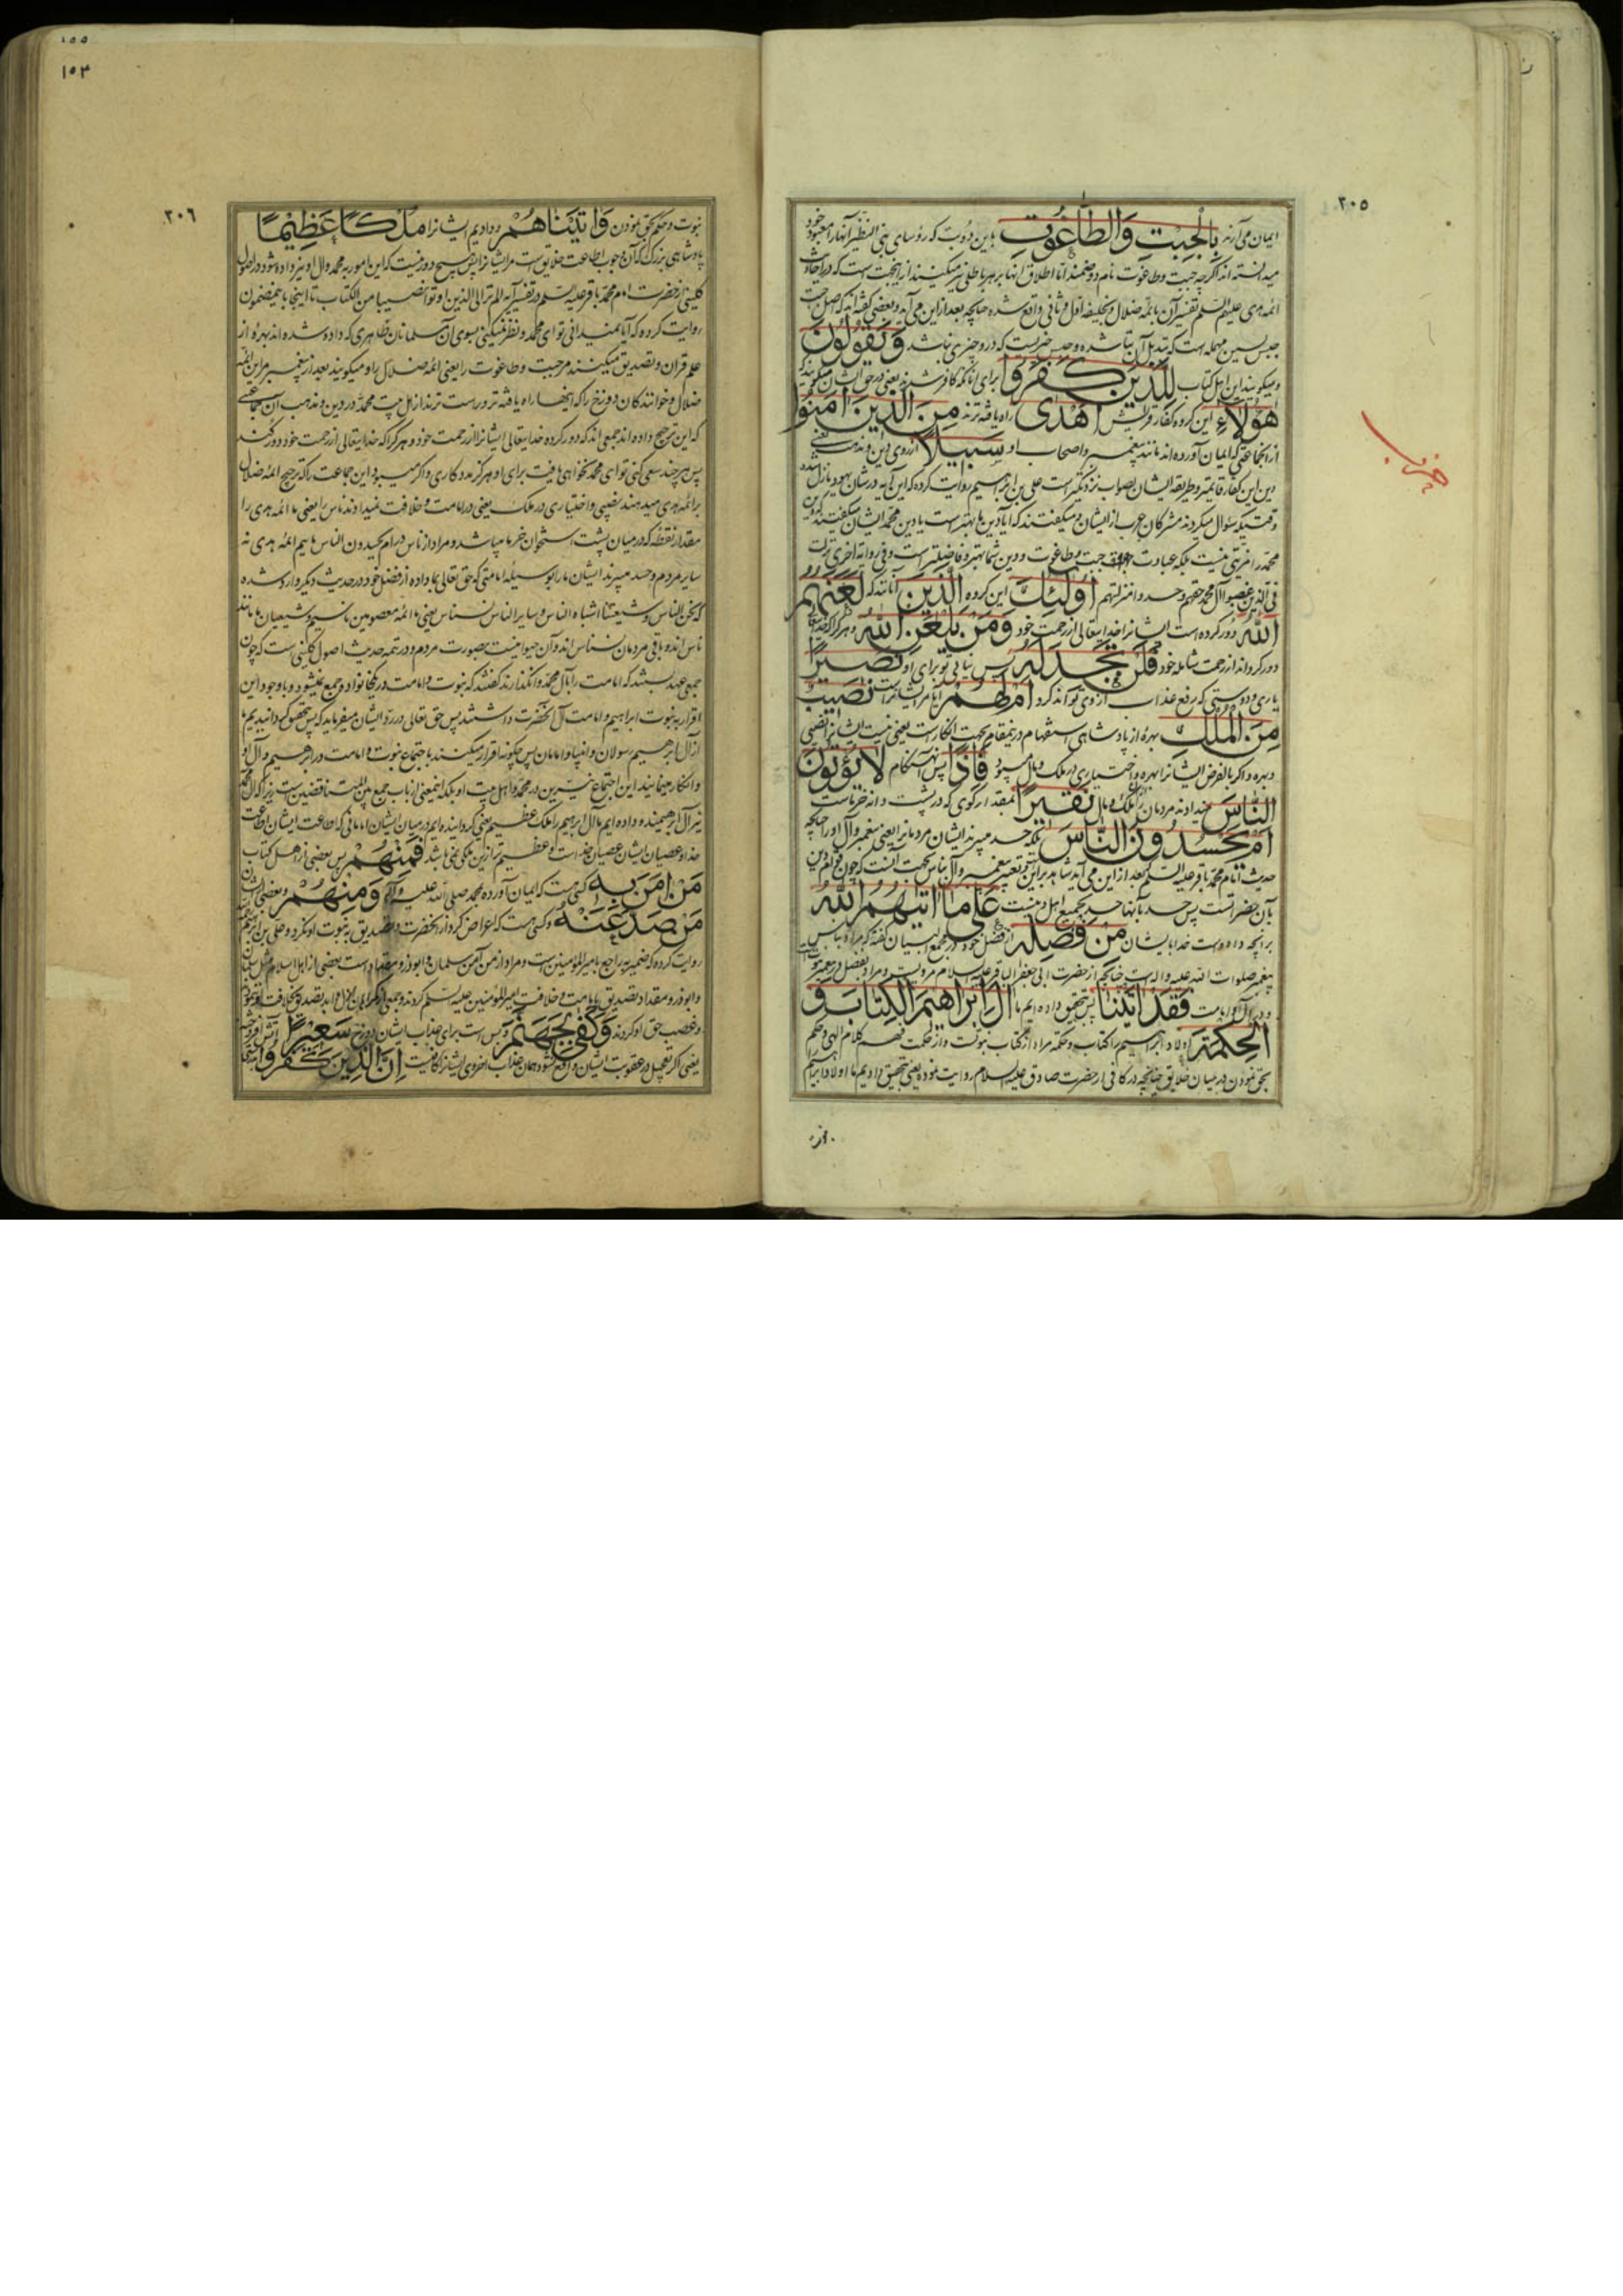 ۲۰۵
ایمان می‌آرند بِالْجِبْتِ وَالطَّاغُوتِ باین دو بت که رؤسای بنی النضیر آنها را معبود خود
میدانسته‌اند اگر چه جبت و طاغوت نام دو صنمند اما اطلاق اینها بر هر باطلی نیز میکنند از اینجهت است که در احادیث
ائمه هدی علیهم السلم تفسیر آن بائمه ضلال و بخلیفه اول و ثانی واقع شده چنانچه بعد از این می‌آید و بعضی گفته‌اند که اصل جبت
جبس بسین مهمله است که تبدیل آن بتا شده و جبس چیزیست که درو چیزی نباشد وَیَقُولُونَ
و میگویند این اهل کتاب لِلَّذِینَ کَفَرُوا برای آنانکه کافر شدند یعنی در حق ایشان میگویند که
هٰؤُلَاءِ این گروه کفار قریش أَهْدٰی راه یافته‌ترند مِنَ الَّذِینَ آمَنُوا
از آنجماعتی که ایمان آورده‌اند مانند پیغمبر و اصحاب او سَبِیلًا از روی دین و مذهب یعنی
دین این کفار قایمتر و طریقه ایشان بصواب نزدیکتر است علی بن ابراهیم روایت کرده که این آیه در شان یهود نازل شده
وقتیکه سؤال میکردند مشرکان عرب از ایشان و میگفتند که آیا دین ما بهتر است یا دین محمد ایشان میگفتند که دین
محمد را مزیتی نیست بلکه عبادت جبت و طاغوت و دین شما بهتر و فاضلتر است و فی روایة اخری نزلت
فی الذین غصبوا آل محمد حقهم و حسدوا منزلتهم أُولٰئِكَ این گروه الَّذِینَ آنانند که لَعَنَهُمُ
اللّٰهُ دور کرده است ایشانرا خدایتعالی از رحمت خود وَمَنْ یَلْعَنِ اللّٰهُ و هر که را که خدایتعالی
دور گرداند از رحمت شامله خود فَلَنْ تَجِدَ لَهُ پس نیابی تو برای او نَصِیرًا
یاری و دوستی که رفع عذاب از وی تواند کرد أَمْ لَهُمْ آیا مر ایشانراست نَصِیبٌ
مِنَ الْمُلْكِ بهره از پادشاهی استفهام در ینمقام بجهت انکار است یعنی نیست ایشانرا نصیبی
و بهره و اگر بالفرض ایشانرا بهره و اختیاری در ملک و مال میبود فَإِذًا پس آنهنگام لَا یُؤْتُونَ
النَّاسَ نمیدادند مردمان را از ملک و مال نَقِیرًا بمقدار گوی که در پشت دانه خرماست
أَمْ یَحْسُدُونَ النَّاسَ بلکه حسد میبرند ایشان مردمانرا یعنی پیغمبر و آل او را چنانچه
حدیث امام محمد باقر علیه السلم که بعد از این می‌آید شاهد بر این
بآن حضرتست پس حسد بآنها حسد بجمیع اهل دنیاست عَلٰی مَا آتٰهُمُ اللّٰهُ
بر آنچه داده‌است خدا بایشان مِنْ فَضْلِهِ از فضل خود و در مجمع البیان گفته که مراد بناس
پیغمبر صلوات الله علیه و اله است چنانچه از حضرت ابی جعفر الباقر علیه السلام مرویست و مراد بفضل در پیغمبر نبوتست
و در آل او امامت فَقَدْ آتَیْنَا پس بتحقیق داده‌ایم ما آلَ إِبْرٰاهِیمَ الْکِتَابَ وَ
الْحِکْمَةَ اولاد ابراهیم را کتاب و حکمة مراد از کتاب نبوتست و از حکمت فهم کلام الهی و حکم
بحق نمودن در میان خلایق چنانچه در کافی از حضرت صادق علیه السلام روایت نموده یعنی بتحقیق دادیم ما اولاد ابراهیم را
حزب
۱۵۵
۱۵۳
۲۰۶
نبوت و حکم بحق نمودن وَآتَیْنَاهُمْ و دادیم ایشانرا مُلْکًا عَظِیمًا
پادشاهی بزرگ که آن وجوب اطاعت خلایق است مر ایشانرا پس هیچ دور نیست که این امور به محمد و آل او نیز داده شود در اصول
کلینی از حضرت امام محمد باقر علیه السلم در تفسیر آیه الم تر الی الذین اوتوا نصیبا من الکتاب تا اینجا باینمضمون
روایت کرده که آیا نمیدانی تو ای محمد و نظر نمیکنی بسوی آن مسلمانان ظاهری که داده شده‌اند بهره از
علم قران و تصدیق میکنند مر جبت و طاغوت را یعنی ائمه ضلال را و میگویند بعد از پیغمبر مر این ائمه
ضلال و خوانندگان دوزخ را که اینها راه یافته‌تر و درست‌ترند از اهل بیت محمد در دین و مذهب آن جماعتی
که این ترجیح داده‌اند جمعی‌اند که دور کرده خدایتعالی ایشانرا از رحمت خود و هر که را که خدایتعالی از رحمت خود دور کند
پس هر چند سعی کنی تو ای محمد نخواهی یافت برای او هرگز مددکاری و اگر میبود این جماعت را که ترجیح ائمه ضلال
بر ائمه هدی میدهند نصیبی و اختیاری در ملک یعنی در امامت و خلافت نمیدادند ناس را یعنی ما ائمه هدی را
مقدار نقطه که در میان پشت استخوان خرما میباشد و مراد از ناس در ام یحسدون الناس ماییم ائمه هدی نه
سایر مردم و حسد میبرند ایشان ما را بوسیله امامتی که حق تعالی بما داده از فضل خود و در حدیث دیگر وارد شده
که نحن الناس و شیعتنا اشباه الناس و سایر الناس نسناس یعنی ما ائمه معصومین ناسیم و شیعیان ما مانند
ناس‌اند و باقی مردمان نسناس‌اند و آن حیوانیست بصورت مردم و در تتمه حدیث اصول کلینی است که چون
جمعی بستند که امامت را بآل محمد وانگذارند گفتند که نبوت و امامت در یکخانواده جمع نمیشود و با وجود این
اقرار به نبوت ابراهیم و امامت آل آنحضرت داشتند پس حق تعالی در رد ایشان میفرماید که پس بتحقیق گردانیدیم ما
از آل ابراهیم رسولان و انبیا و امامان پس چگونه اقرار میکنند باجتماع نبوت و امامت در ابراهیم و آل او
و انکار مینمایند این اجتماع در محمد و اهل بیت او
نیز آل ابراهیمند و داده‌ایم ما آل ابراهیم را ملک عظیم یعنی گردانیده‌ایم در میان ایشان امامانی که اطاعت ایشان اطاعت
خدا و عصیان ایشان عصیان خداست و عظیم‌تر از این ملکی نمی‌باشد فَمِنْهُمْ پس بعضی از اهل کتاب
مَنْ آمَنَ بِهِ کسی است که ایمان آورده بمحمد صلی الله علیه و آله وَمِنْهُمْ و بعضی از ایشان
مَنْ صَدَّ عَنْهُ کسی است که اعراض کرد از آنحضرت و تصدیق به نبوت او نکرد و علی بن ابراهیم
روایت کرده که ضمیر به راجع بامیر المؤمنین است و مراد از من آمن سلمان و ابوذر و مقداد است
و ابوذر و مقداد تصدیق بامامت و خلافت امیر المؤمنین علیه السلم کردند
و غصب حق او کردند وَکَفٰی بِجَهَنَّمَ و بس است برای عذاب ایشان دوزخ سَعِیرًا آتش افروخته
یعنی اگر تعجیل در عقوبت ایشان واقع نشود همان عذاب اخروی ایشانرا کافیست إِنَّ الَّذِینَ کَفَرُوا